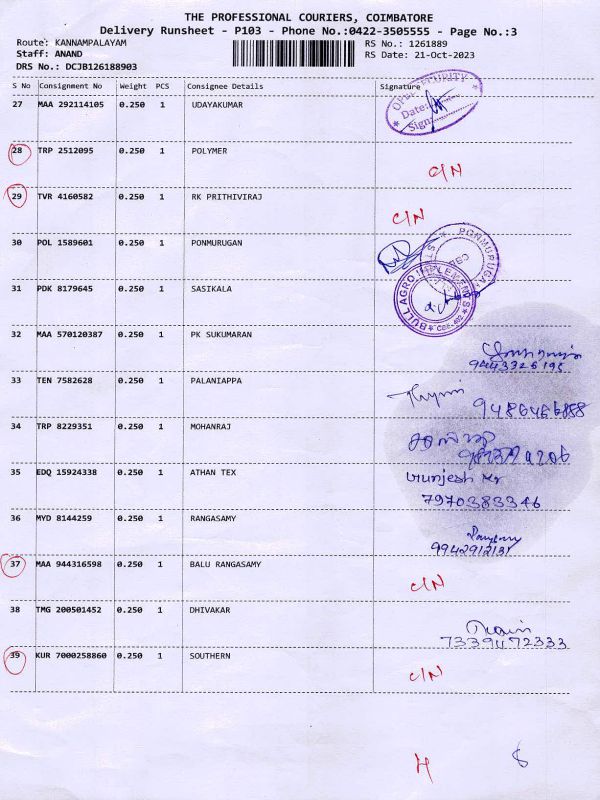 THE PROFESSIONAL COURIERS, COIMBATORE
Delivery Runsheet - P103 - Phone No.:0422-3505555 - Page No.:3
Route: KANNAMPALAYAM
RS No.: 1261889
Staff: ANAND
RS Date: 21-Oct-2023
DRS No.: DCJB126188903
S No Consignment No Weight PCS Consignee Details Signature
27 MAA 292114105 0.250 1 UDAYAKUMAR
SECURITY
Date:
Sign:
28 TRP 2512095 0.250 1 POLYMER
C/N
29 TVR 4160582 0.250 1 RK PRITHIVIRAJ
C/N
30 POL 1589601 0.250 1 PONMURUGAN
31 PDK 8179645 0.250 1 SASIKALA
BULL AGRO IMPLEMENTS
32 MAA 570120387 0.250 1 PK SUKUMARAN
33 TEN 7582628 0.250 1 PALANIAPPA
34 TRP 8229351 0.250 1 MOHANRAJ
35 EDQ 15924338 0.250 1 ATHAN TEX
7970383346
36 MYD 8144259 0.250 1 RANGASAMY
9942912131
37 MAA 944316598 0.250 1 BALU RANGASAMY
C/N
38 TMG 200501452 0.250 1 DHIVAKAR
7339472333
39 KUR 7000258860 0.250 1 SOUTHERN
C/N